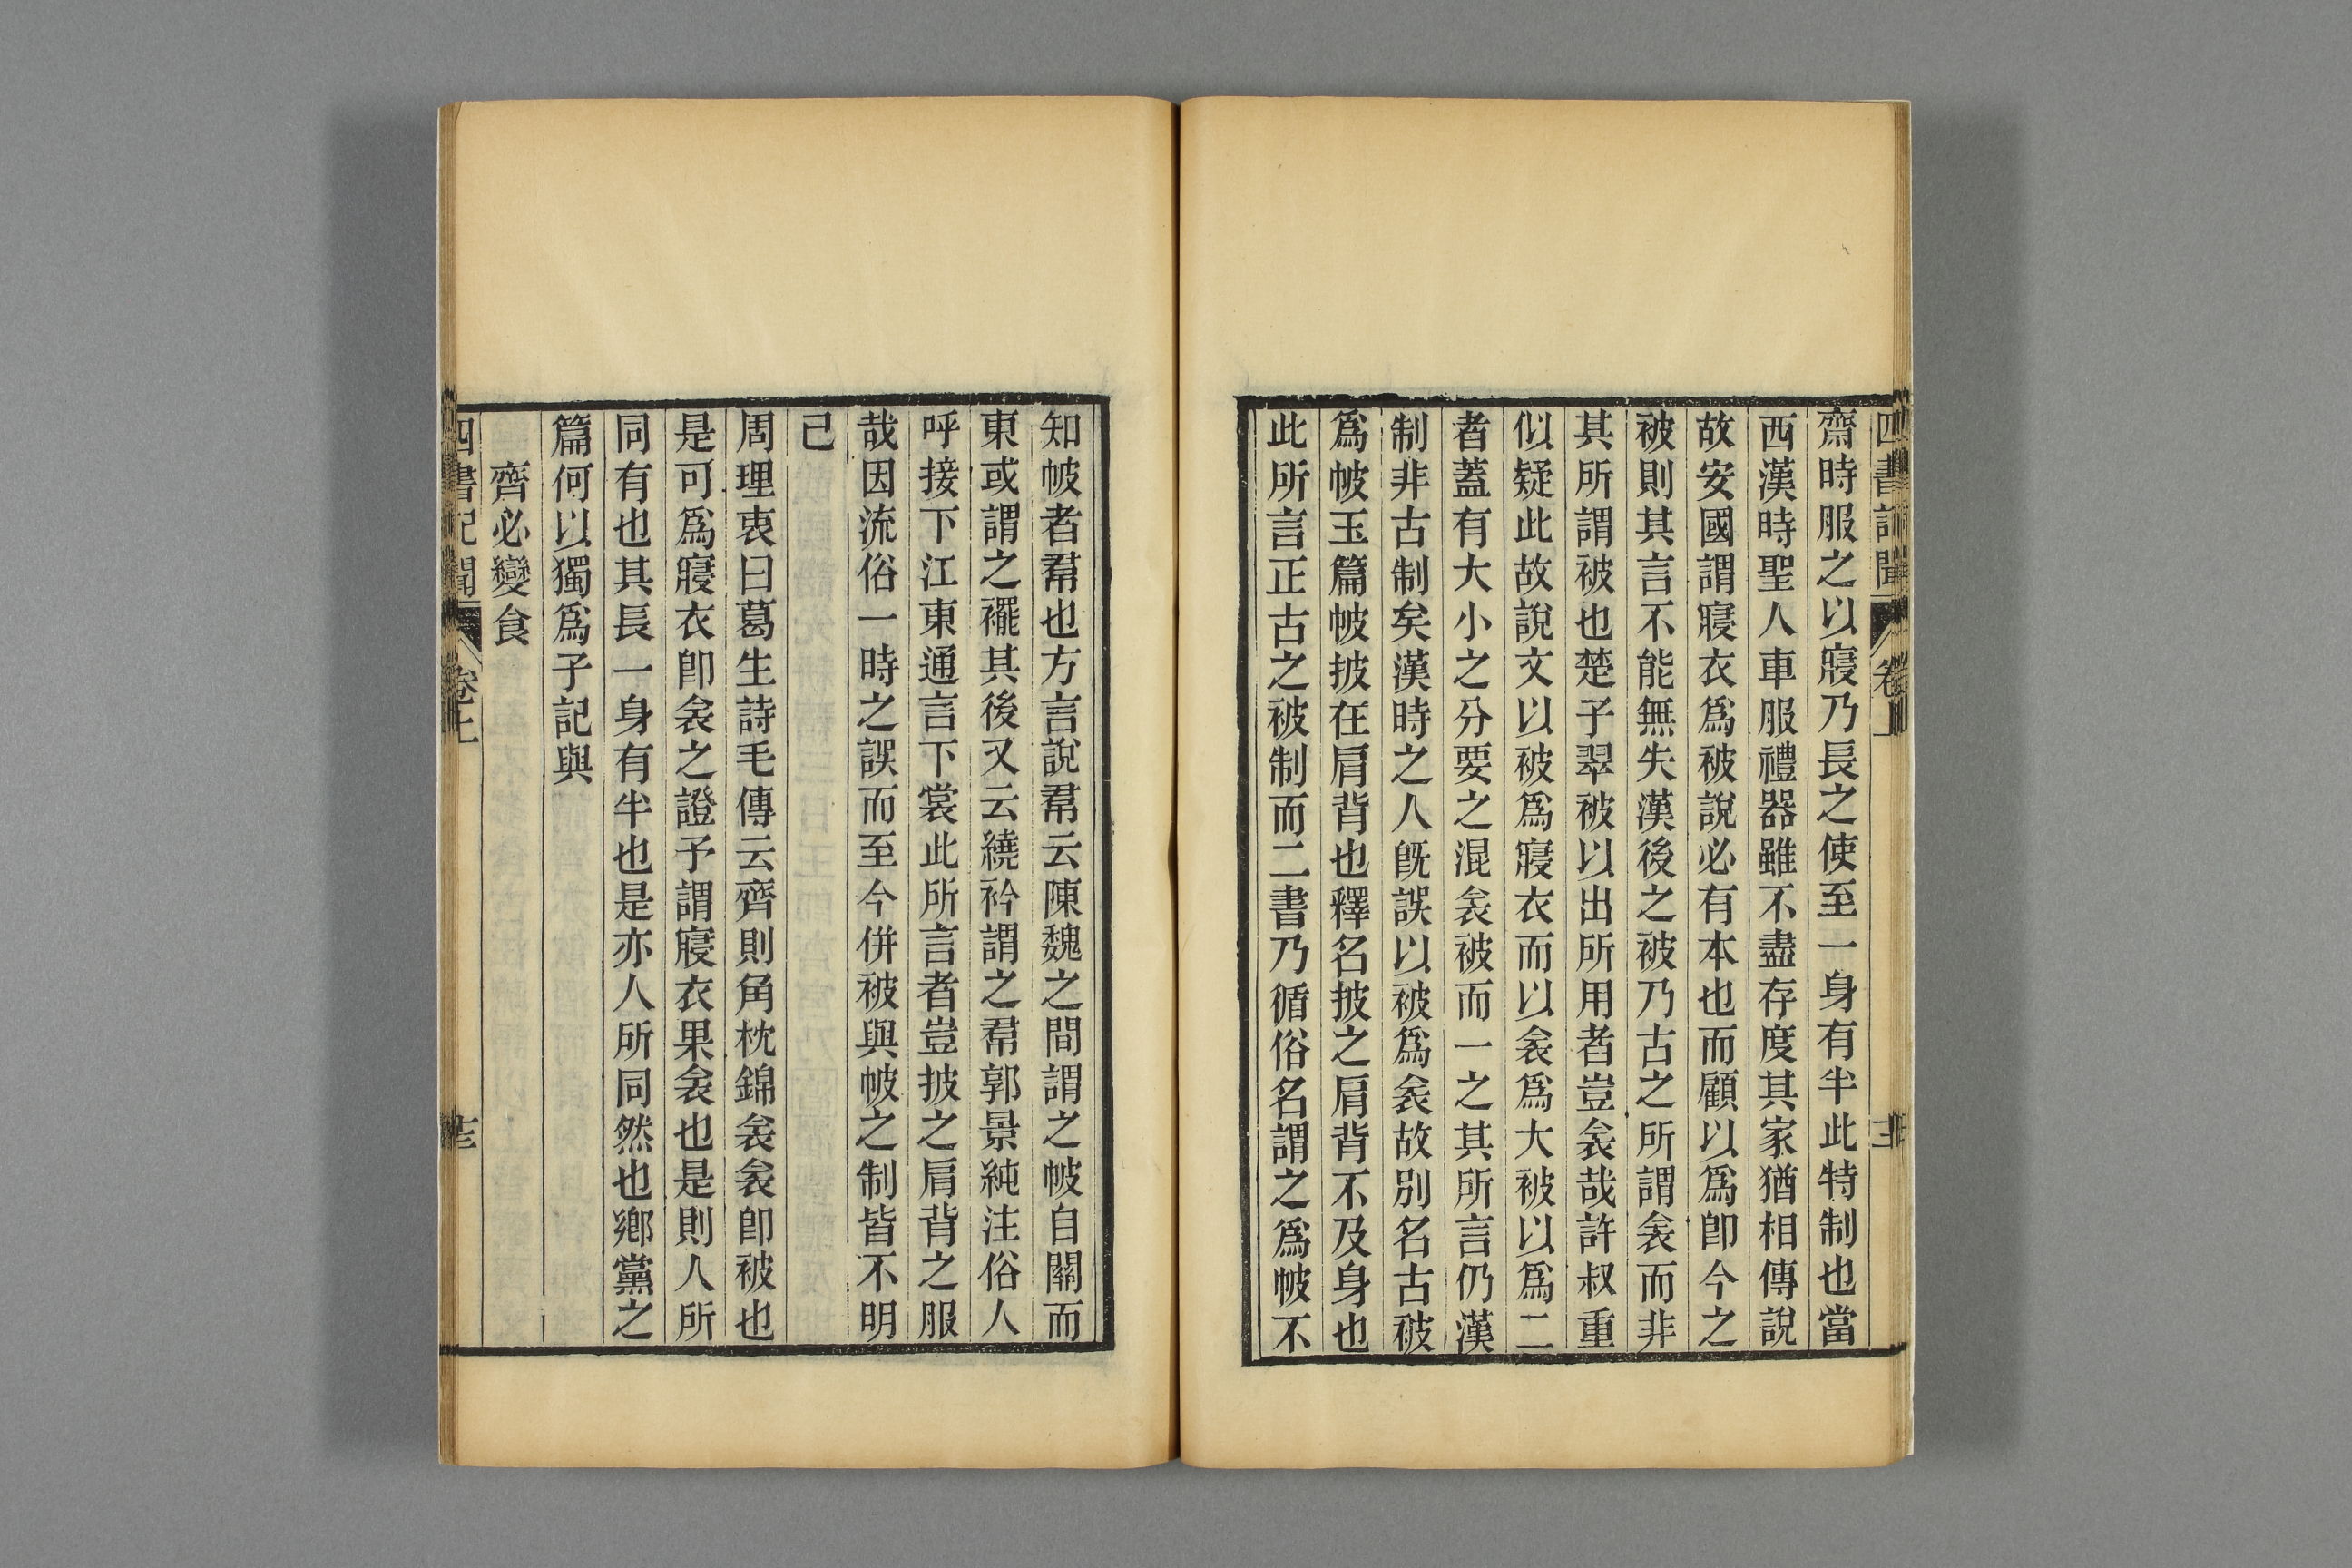 四書記聞 卷上
齋時服之以寢乃長之使至一身有半此特制也當
西漢時聖人車服禮器雖不盡存度其家猶相傳說
故安國謂寢衣爲被說必有本也而顧以爲卽今之
被則其言不能無失漢後之被乃古之所謂衾而非
其所謂被也楚子翠被以出所用者豈衾哉許叔重
似疑此故說文以被爲寢衣而以衾爲大被以爲二
者蓋有大小之分要之混衾被而一之其所言仍漢
制非古制矣漢時之人旣誤以被爲衾故別名古被
爲帔玉篇帔披在肩背也釋名披之肩背不及身也
此所言正古之被制而二書乃循俗名謂之爲帔不
知帔者帬也方言說帬云陳魏之間謂之帔自關而
東或謂之襬其後又云繞衿謂之帬郭景純注俗人
呼接下江東通言下裳此所言者豈披之肩背之服
哉因流俗一時之誤而至今併被與帔之制皆不明
已
周理衷曰葛生詩毛傳云齊則角枕錦衾衾卽被也
是可爲寢衣卽衾之證予謂寢衣果衾也是則人所
同有也其長一身有半也是亦人所同然也鄉黨之
篇何以獨爲子記與
齊必變食
四書記聞 卷上